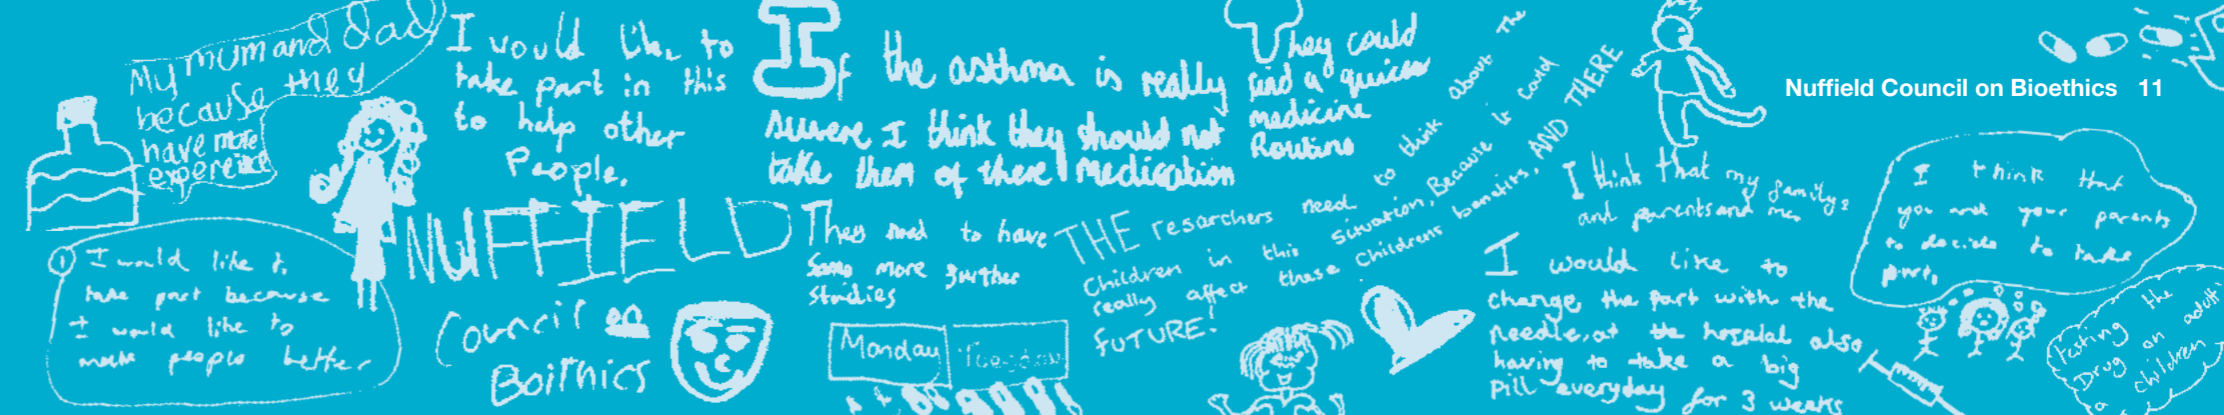 My mum and dad
because they
have more
expereince
I would like to
take part in this
to help other
People.
If the asthma is really
suvere I think they should not
take them of there Medication
They could
find a quicer
medicine
Routine
Nuffield Council on Bioethics 11
① I would like to
take part because
I would like to
make people better
NUFFIELD
Council on
Boithics
They need to have
some more further
studies
Monday Tuesday
THE resarchers need to think about The
Children in this situation, Because it could
really affect these Childrens benafits, AND THERE
FUTURE!
I think that my family
and parents and me
I would like to
change the part with the
needle, at the hospital also
having to take a big
Pill everyday for 3 weeks
I think that
you and your parents
to decide to take
part.
testing the
Drug on adults
children